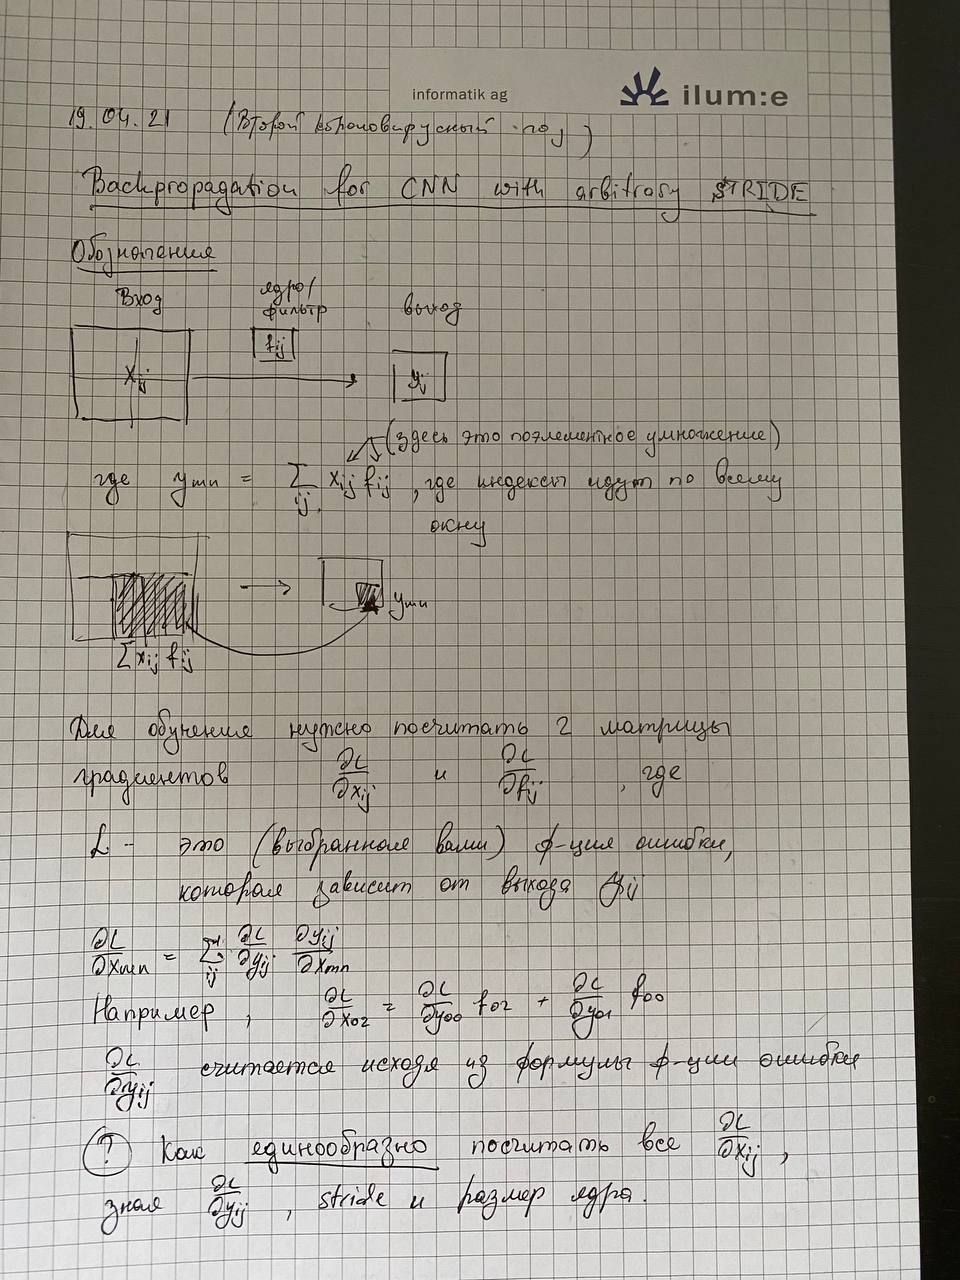 informatik ag ilum:e
19.04.21 (Второй короновирусный год)
Backpropagation for CNN with arbitrary STRIDE
Обозначения
Вход ядро/ фильтр выход
x_ij f_ij y_ij
(здесь это поэлементное умножение)
где y_mn = ∑_ij x_ij f_ij , где индексы идут по всему
окну
y_mn
∑ x_ij f_ij
Для обучения нужно посчитать 2 матрицы
градиентов ∂L/∂x_ij и ∂L/∂f_ij , где
L - это (выбранная вами) ф-ция ошибки,
которая зависит от выхода y_ij
∂L/∂x_mn = ∑_ij ∂L/∂y_ij ∂y_ij/∂x_mn
Например, ∂L/∂x_02 = ∂L/∂y_00 f_02 + ∂L/∂y_01 f_00
∂L/∂y_ij считается исходя из формулы ф-ции ошибки
? Как единообразно посчитать все ∂L/∂x_ij ,
зная ∂L/∂y_ij , stride и размер ядра.